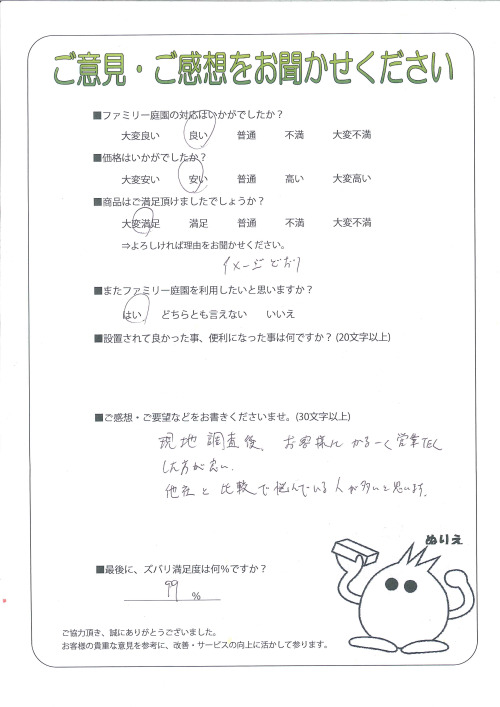 ご意見・ご感想をお聞かせください
■ファミリー庭園の対応はいかがでしたか？
大変良い 良い 普通 不満 大変不満
■価格はいかがでしたか？
大変安い 安い 普通 高い 大変高い
■商品はご満足頂けましたでしょうか？
大変満足 満足 普通 不満 大変不満
⇒よろしければ理由をお聞かせください。
イメージどおり
■またファミリー庭園を利用したいと思いますか？
はい どちらとも言えない いいえ
■設置されて良かった事、便利になった事は何ですか？(20文字以上)
■ご感想・ご要望などをお書きくださいませ。(30文字以上)
現地調査後、お客様に かるーく営業TEL
した方が良い.
他社と比較で悩んでいる人が多いと思います.
ぬりえ
■最後に、ズバリ満足度は何％ですか？
99 %
ご協力頂き、誠にありがとうございました。
お客様の貴重な意見を参考に、改善・サービスの向上に活かして参ります。